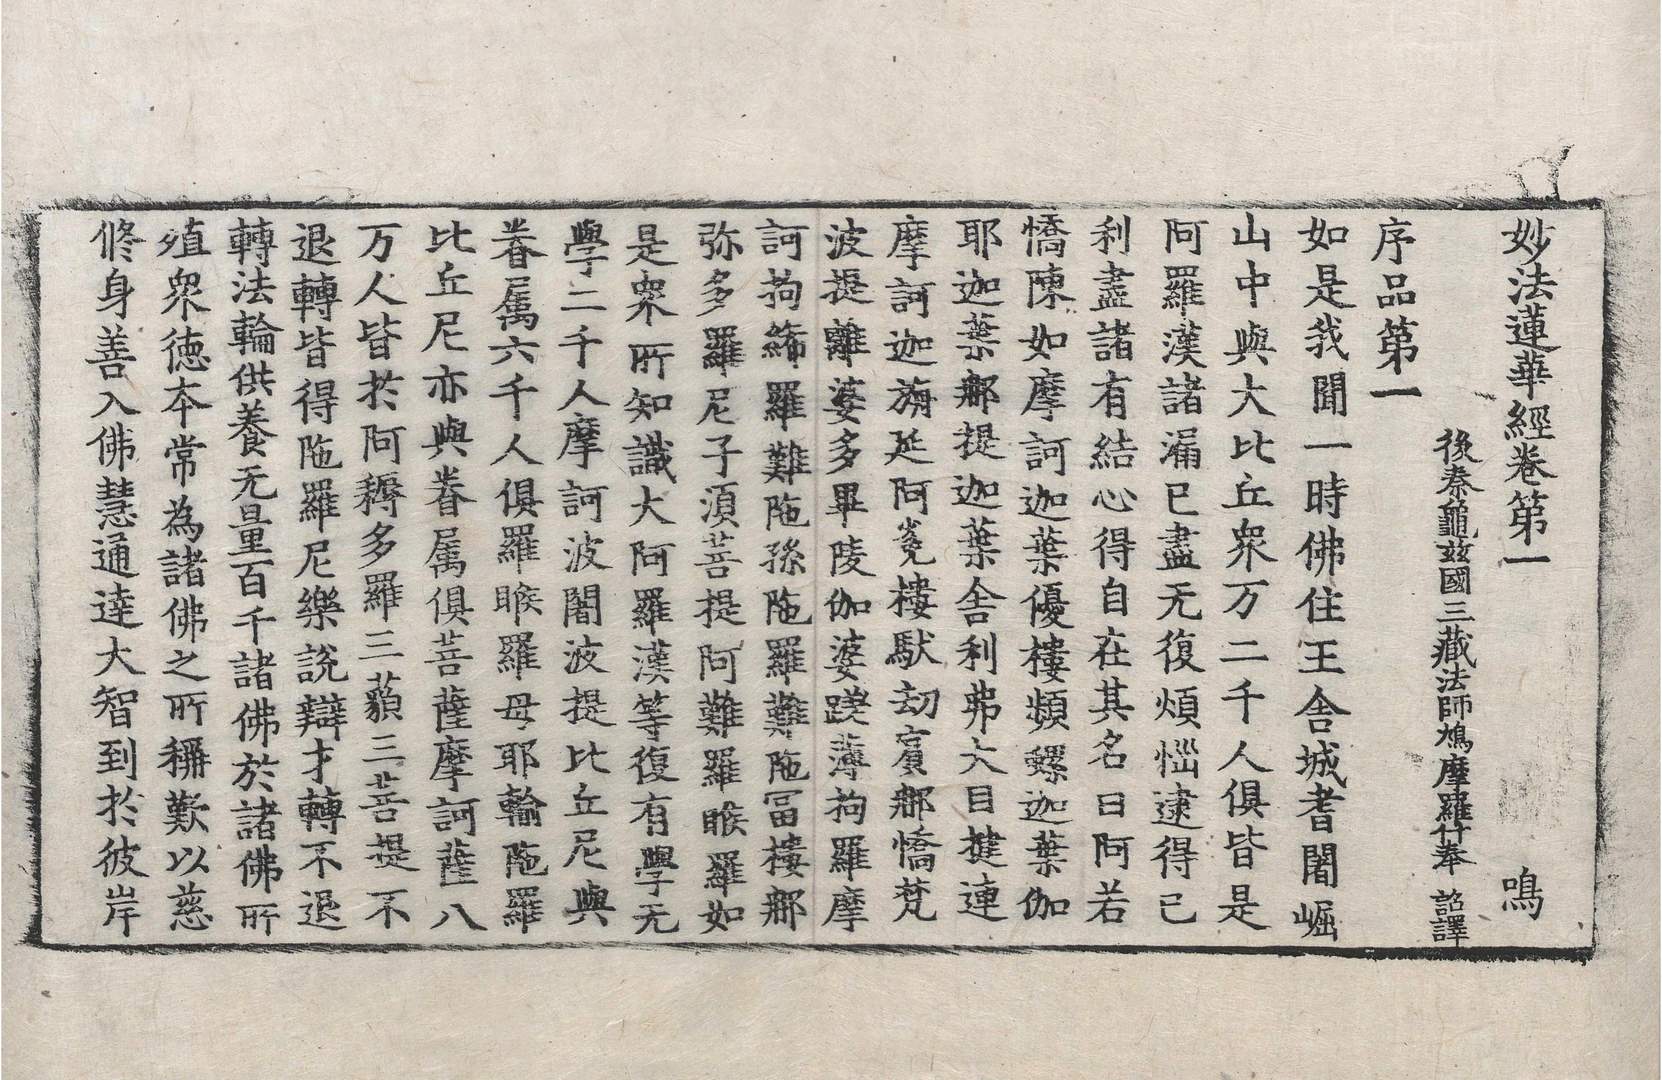 妙法蓮華經卷第一　鳴
後秦龜玆國三藏法師鳩摩羅什奉　詔譯
序品第一
如是我聞一時佛住王舍城耆闍崛
山中與大比丘衆万二千人俱皆是
阿羅漢諸漏已盡无復煩惱逮得己
利盡諸有結心得自在其名曰阿若
憍陳如摩訶迦葉優樓頻螺迦葉伽
耶迦葉那提迦葉舍利弗大目揵連
摩訶迦旃延阿㝹樓馱劫賔那憍梵
波提離婆多畢陵伽婆蹉薄拘羅摩
訶拘絺羅難陁孫陁羅難陁冨樓那
弥多羅尼子湏菩提阿難羅睺羅如
是衆所知識大阿羅漢等復有學无
學二千人摩訶波闍波提比丘尼與
眷属六千人俱羅睺羅母耶輸陁羅
比丘尼亦與眷属俱菩薩摩訶薩八
万人皆於阿耨多羅三藐三菩提不
退轉皆得陁羅尼樂說辯才轉不退
轉法輪供養无量百千諸佛於諸佛所
殖衆德本常為諸佛之所稱歎以慈
修身善入佛慧通達大智到於彼岸